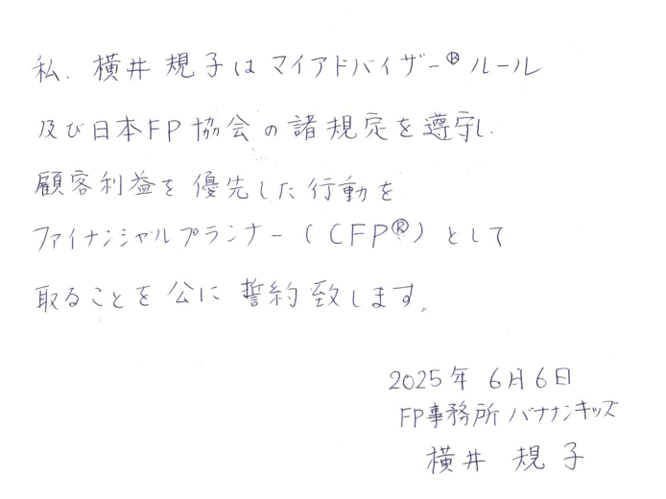 私、横井規子はマイアドバイザー®ルール
及び日本FP協会の諸規定を遵守し、
顧客利益を優先した行動を
ファイナンシャルプランナー(CFP®)として
取ることを公に誓約致します。
2025年 6月6日
FP事務所 バナナンキッズ
横井 規子